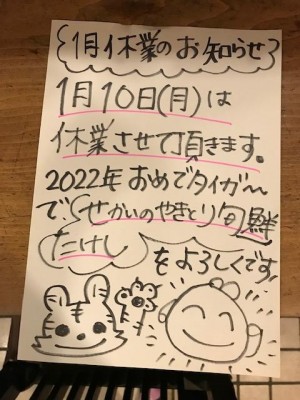 1月休業のお知らせ
1月10日(月)は
休業させて頂きます。
2022年おめでタイガ〜
で、せかいのやきとり旬鮮
たけし をよろしくです。